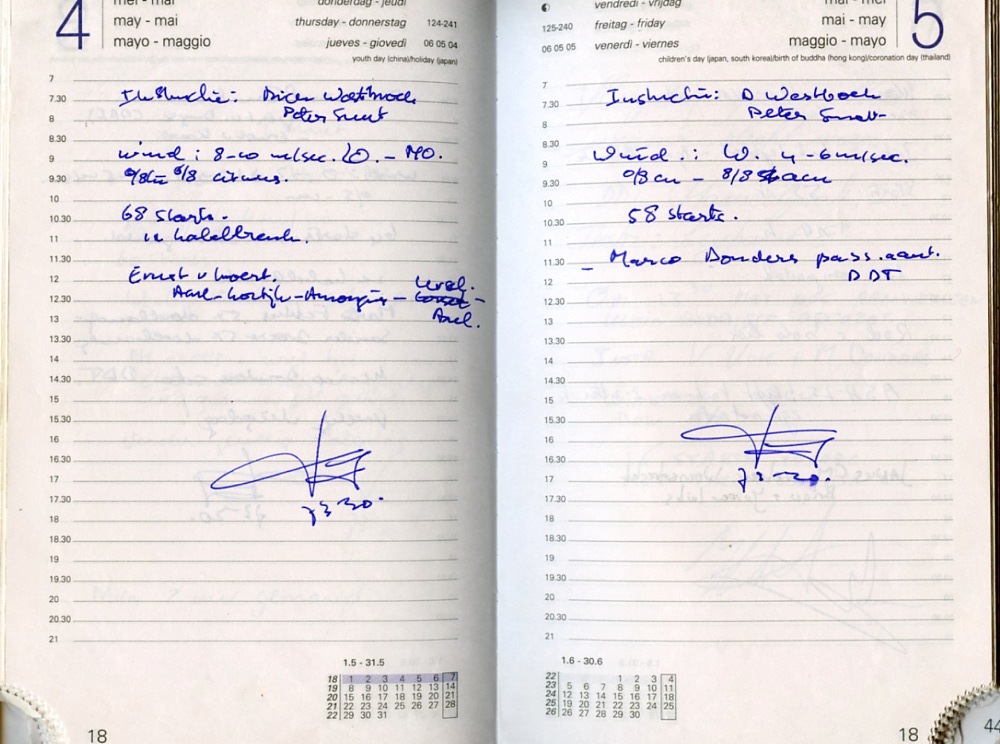 4
mei - mai
may - mai
mayo - maggio
donderdag - jeudi
thursday - donnerstag
jueves - giovedì
124-241
06 05 04
youth day (china)/holiday (japan)
7
7.30 Instructie: Dicen Westbroek
8 Peter Smit
8.30
9 wind: 8-10 m/sec. O. - NO.
9.30 0/8cu 6/8 cirrus.
10
10.30 68 starts.
11 kabelbreuk.
11.30
12 Ernst v
12.30 Axel-
13 Axel.
13.30
14
14.30
15
15.30
16
16.30
17
17.30 73-20.
18
18.30
19
19.30
20
20.30
21
1.5 - 31.5
18 1 2 3 4 5 6 7
19 8 9 10 11 12 13 14
20 15 16 17 18 19 20 21
21 22 23 24 25 26 27 28
22 29 30 31
18
125-240
06 05 05
vendredi - vrijdag
freitag - friday
venerdì - viernes
mai - mei
mai - may
maggio - mayo
5
children's day (japan, south korea)/birth of buddha (hong kong)/coronation day (thailand)
7
7.30 Instructie: D Westbroek
8 Peter Smit
8.30
9 Wind.: W. 4-6m/sec.
9.30 0/8 cu - 8/8 stacu
10
10.30 58 starts.
11
11.30 - Marco Donders pass.aant.
12 DDT
12.30
13
13.30
14
14.30
15
15.30
16
16.30
17 73-20.
17.30
18
18.30
19
19.30
20
20.30
21
1.6 - 30.6
22 1 2 3 4
23 5 6 7 8 9 10 11
24 12 13 14 15 16 17 18
25 19 20 21 22 23 24 25
26 26 27 28 29 30
18
44